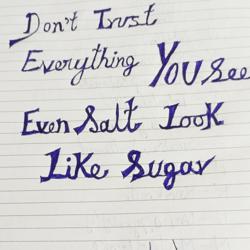 Don't Trust
Everything You See
Even Salt Look
Like Sugar